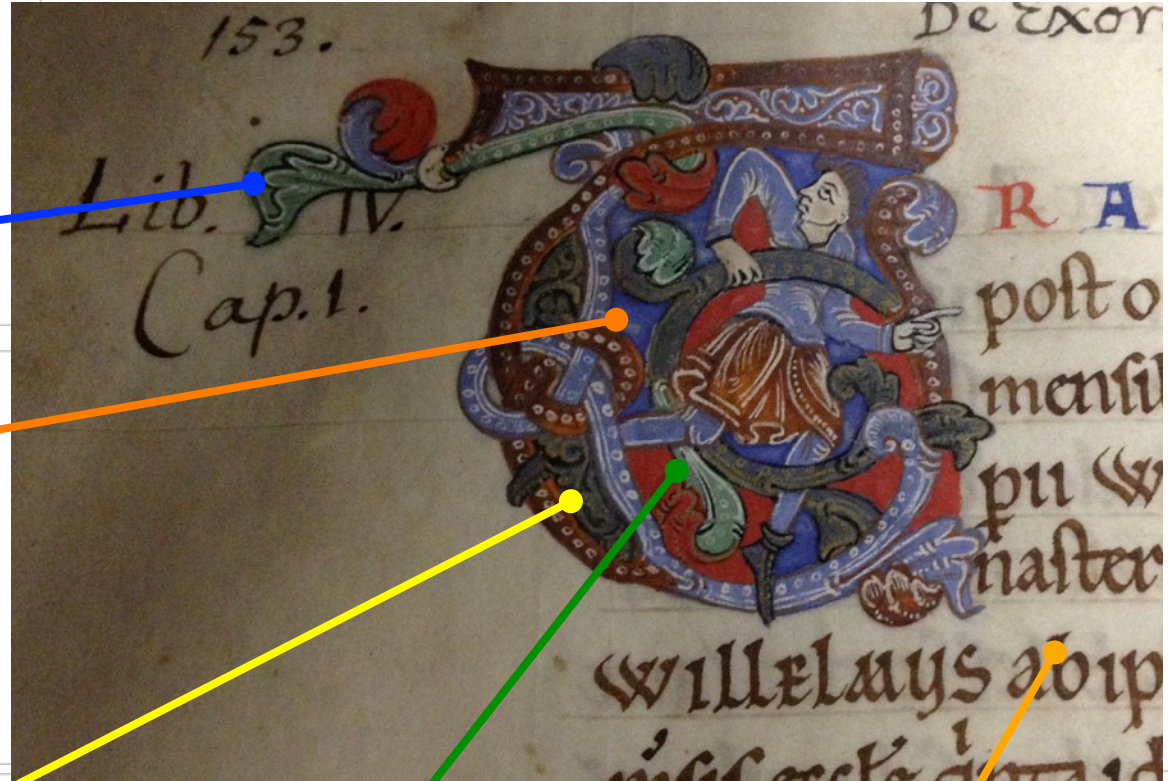 153.
De Exor
Lib. IV.
Cap. 1.
T R A
poſt o
menſi
pii W
naſter
WILLELMUS ab ip